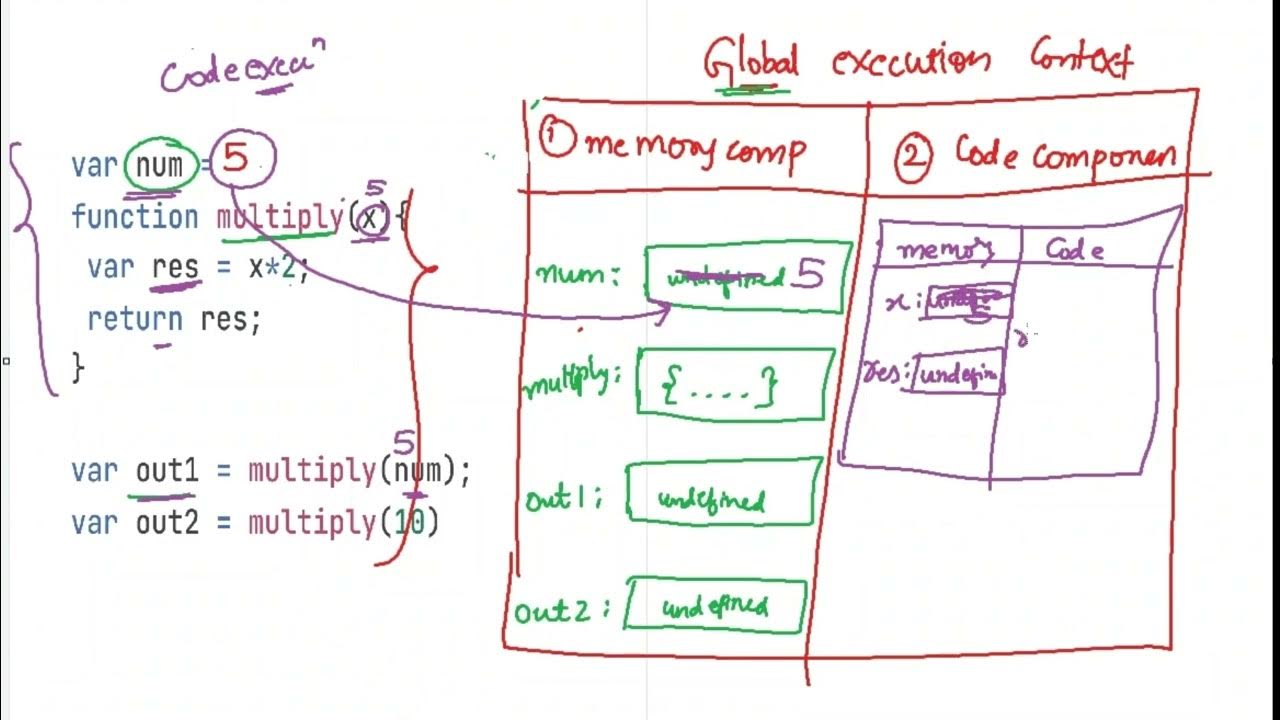 Code execuⁿ
var num = 5
5
function multiply(x){
var res = x*2;
return res;
}
5
var out1 = multiply(num);
var out2 = multiply(10)
Global execution Context
① memory comp
② Code componen
num: undefined 5
multiply: {....}
out1: undefined
out2: undefined
memory Code
x: 5
res: undefin